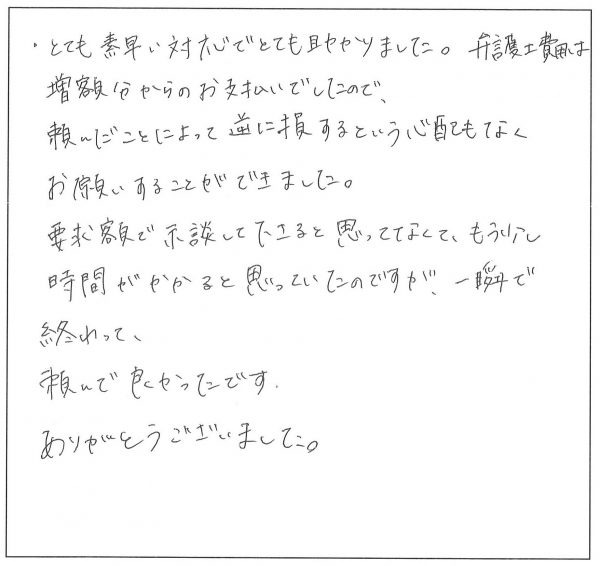 ・とても素早い対応でとても助かりました。弁護士費用は
増額分からのお支払いでしたので、
頼んだことによって逆に損するという心配もなく
お願いすることができました。
要求額で示談して下さると思ってなくて、もう少し
時間がかかると思っていたのですが、一瞬で
終わって、
頼んで良かったです.
ありがとうございました。